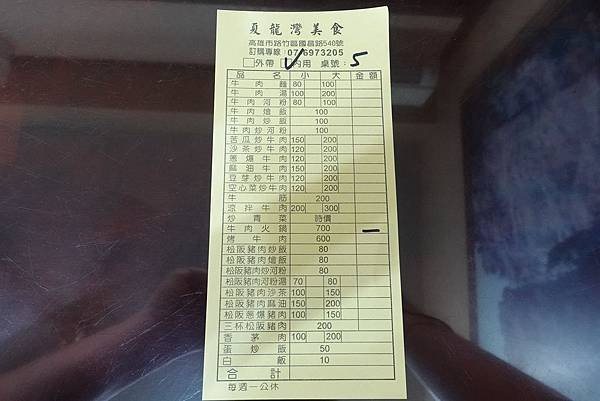 夏龍灣美食
高雄市路竹區國昌路540號
訂購專線 07-6973205
□外帶 □內用 桌號:5
品名 小 大 金額
牛肉麵 80 100
牛肉湯 100 200
牛肉河粉 80 100
牛肉燴飯 100
牛肉炒飯 100
牛肉炒河粉 100
苦瓜炒牛肉 150 200
沙茶炒牛肉 120 200
蔥爆牛肉 120 200
麻油牛肉 150 200
豆芽炒牛肉 120 200
空心菜炒牛肉 120 200
牛筋 200
涼拌牛肉 200 300
炒青菜 時價
牛肉火鍋 700 一
烤牛肉 600
松阪豬肉炒飯 80
松阪豬肉燴飯 80
松阪豬肉炒河粉 80
松阪豬肉河粉湯 70 80
松阪豬肉沙茶 100 150
松阪豬肉麻油 150 200
松阪蔥爆豬肉 100 150
三杯松阪豬肉 200
香茅肉 100 200
蛋炒飯 50
白飯 10
合計
每週一公休